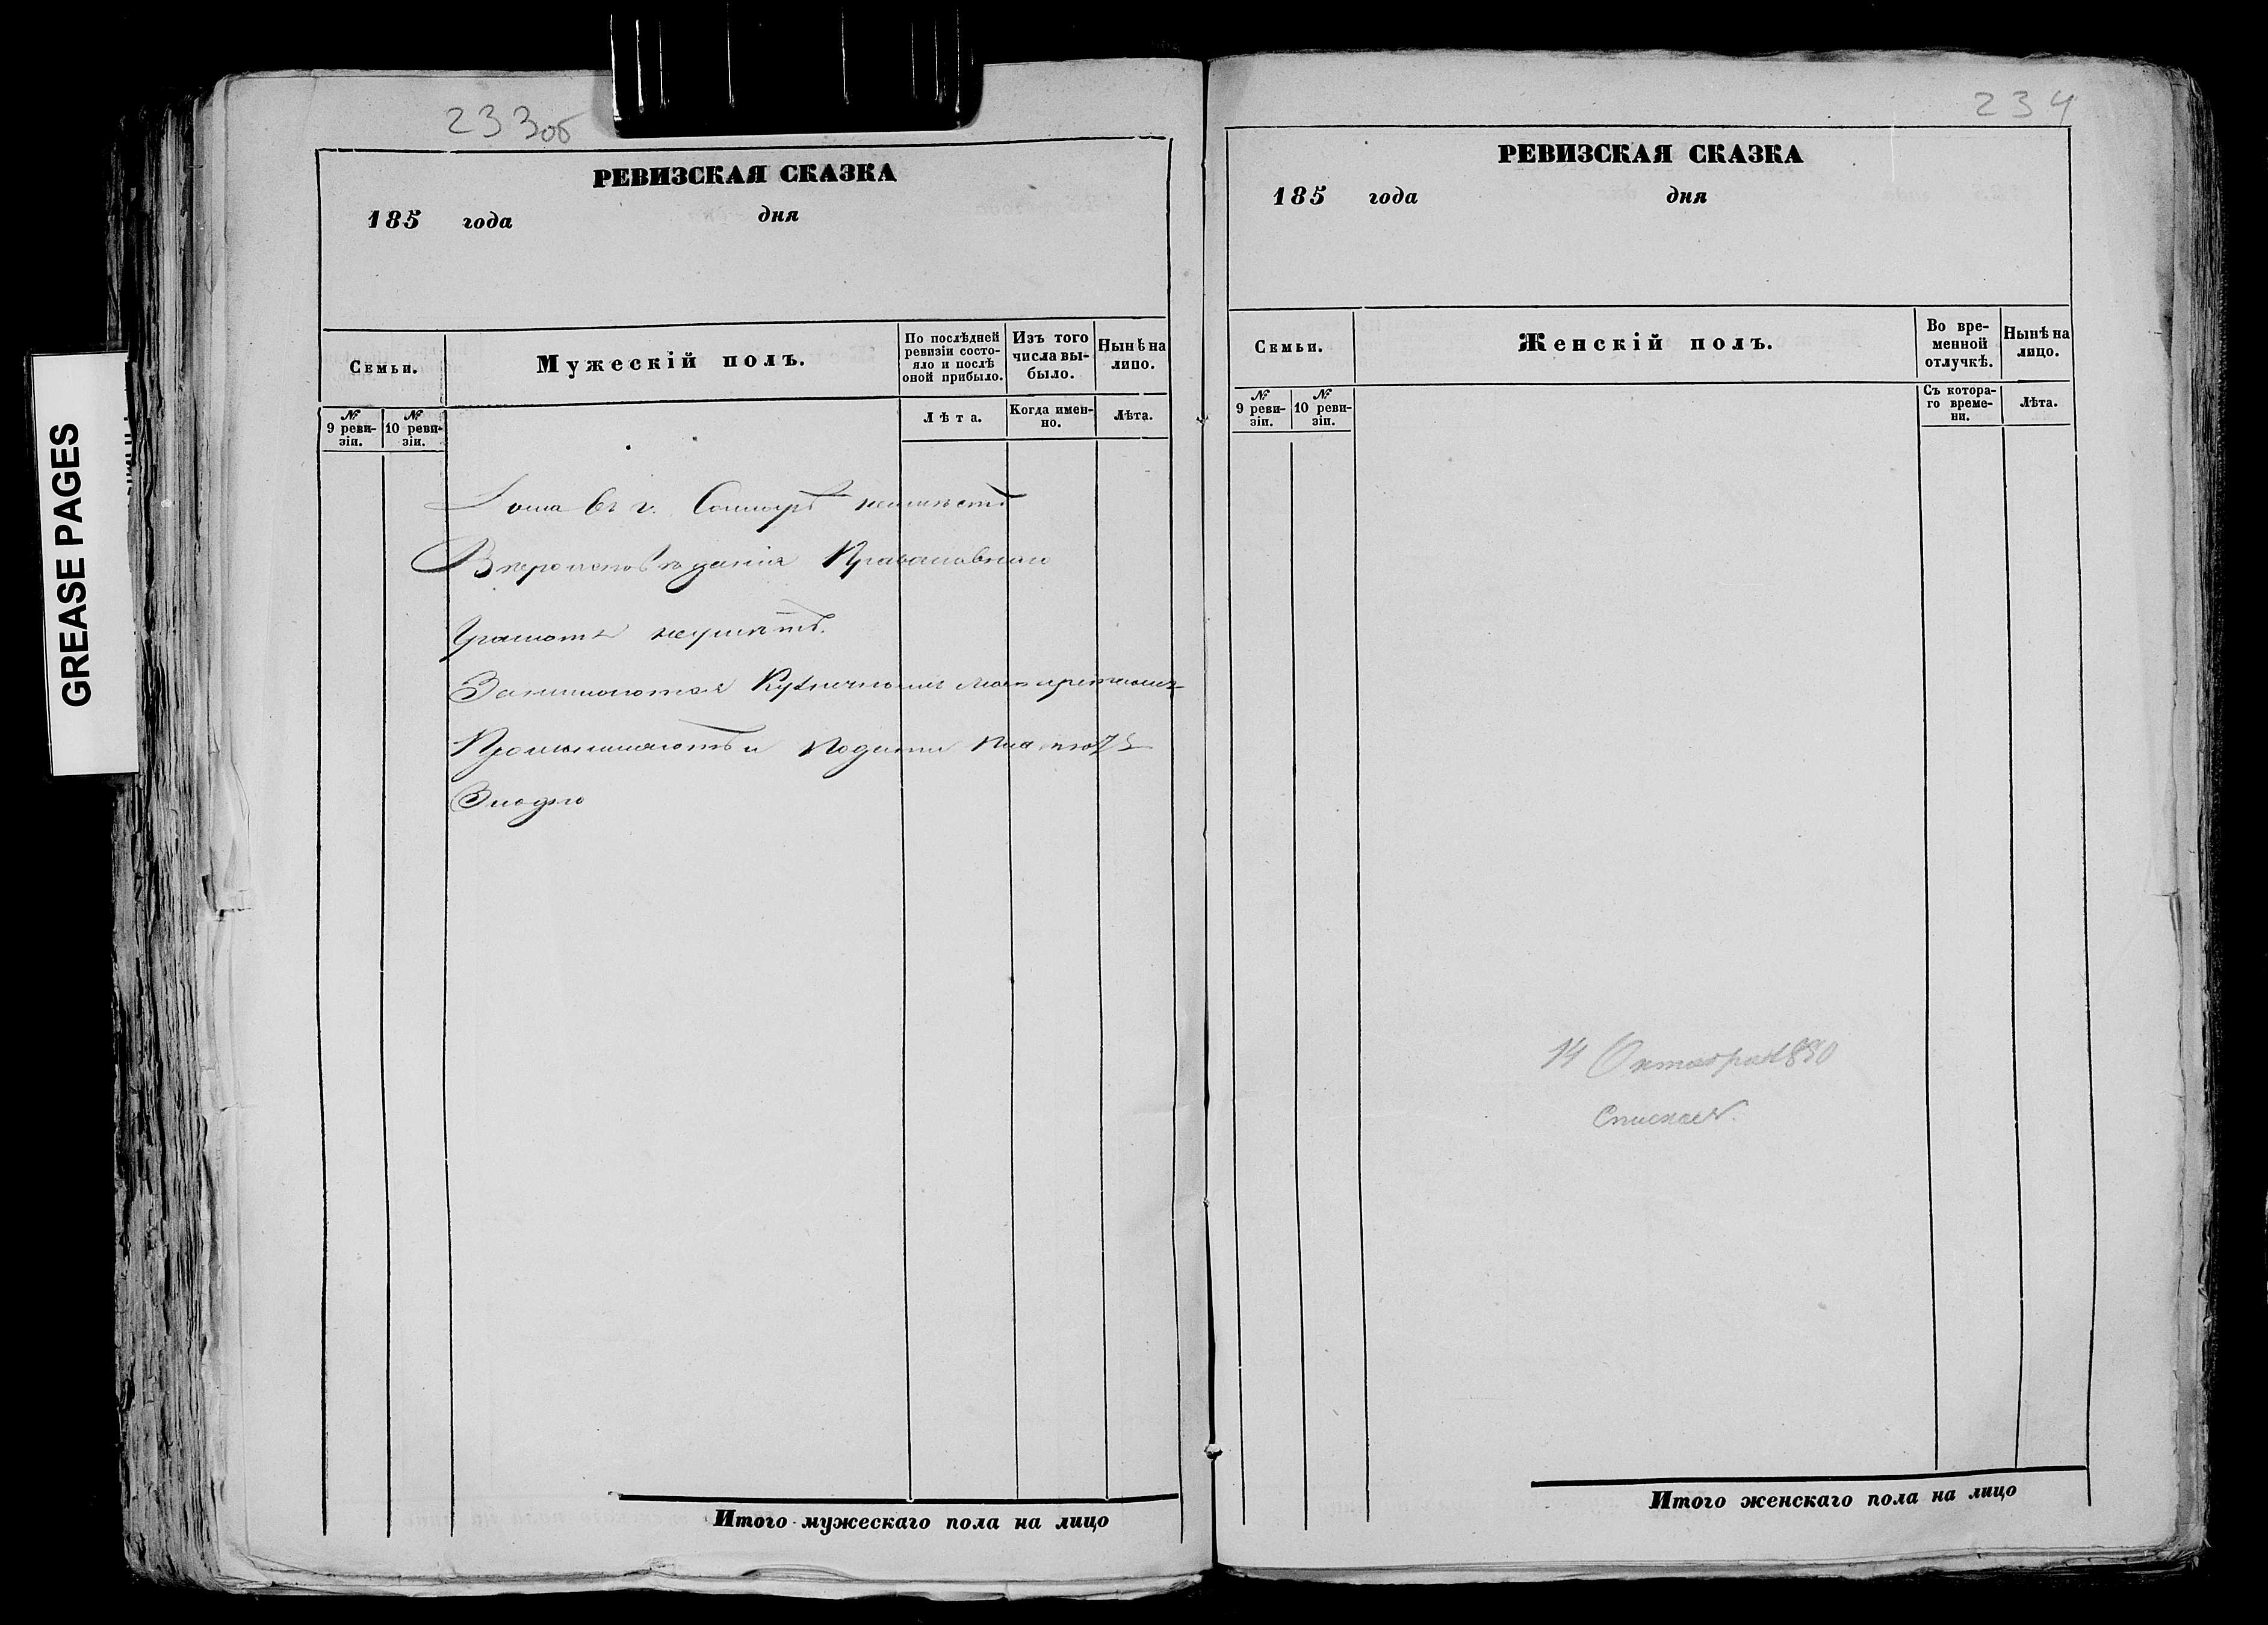 GREASE PAGES
233об
РЕВИЗСКАЯ СКАЗКА
185 года дня
Семьи.
Мужескій полъ.
По послѣдней ревизіи состояло и послѣ оной прибыло.
Изъ того числа выбыло.
Нынѣ на лицо.
№ 9 ревизіи.
№ 10 ревизіи.
Лѣта.
Когда именно.
Лѣта.
Дома въ г. неимѣетъ
Вѣроисповѣданія Православнаго
Грамотѣ неумѣетъ.
Занимаются Кузнечнымъ мастерствомъ
Промышляютъ и Подати платютъ
Итого мужескаго пола на лицо
234
РЕВИЗСКАЯ СКАЗКА
185 года дня
Семьи.
Женскій полъ.
Во временной отлучкѣ.
Нынѣ на лицо.
№ 9 ревизіи.
№ 10 ревизіи.
Съ котораго времени.
Лѣта.
14 Октября
Итого женскаго пола на лицо